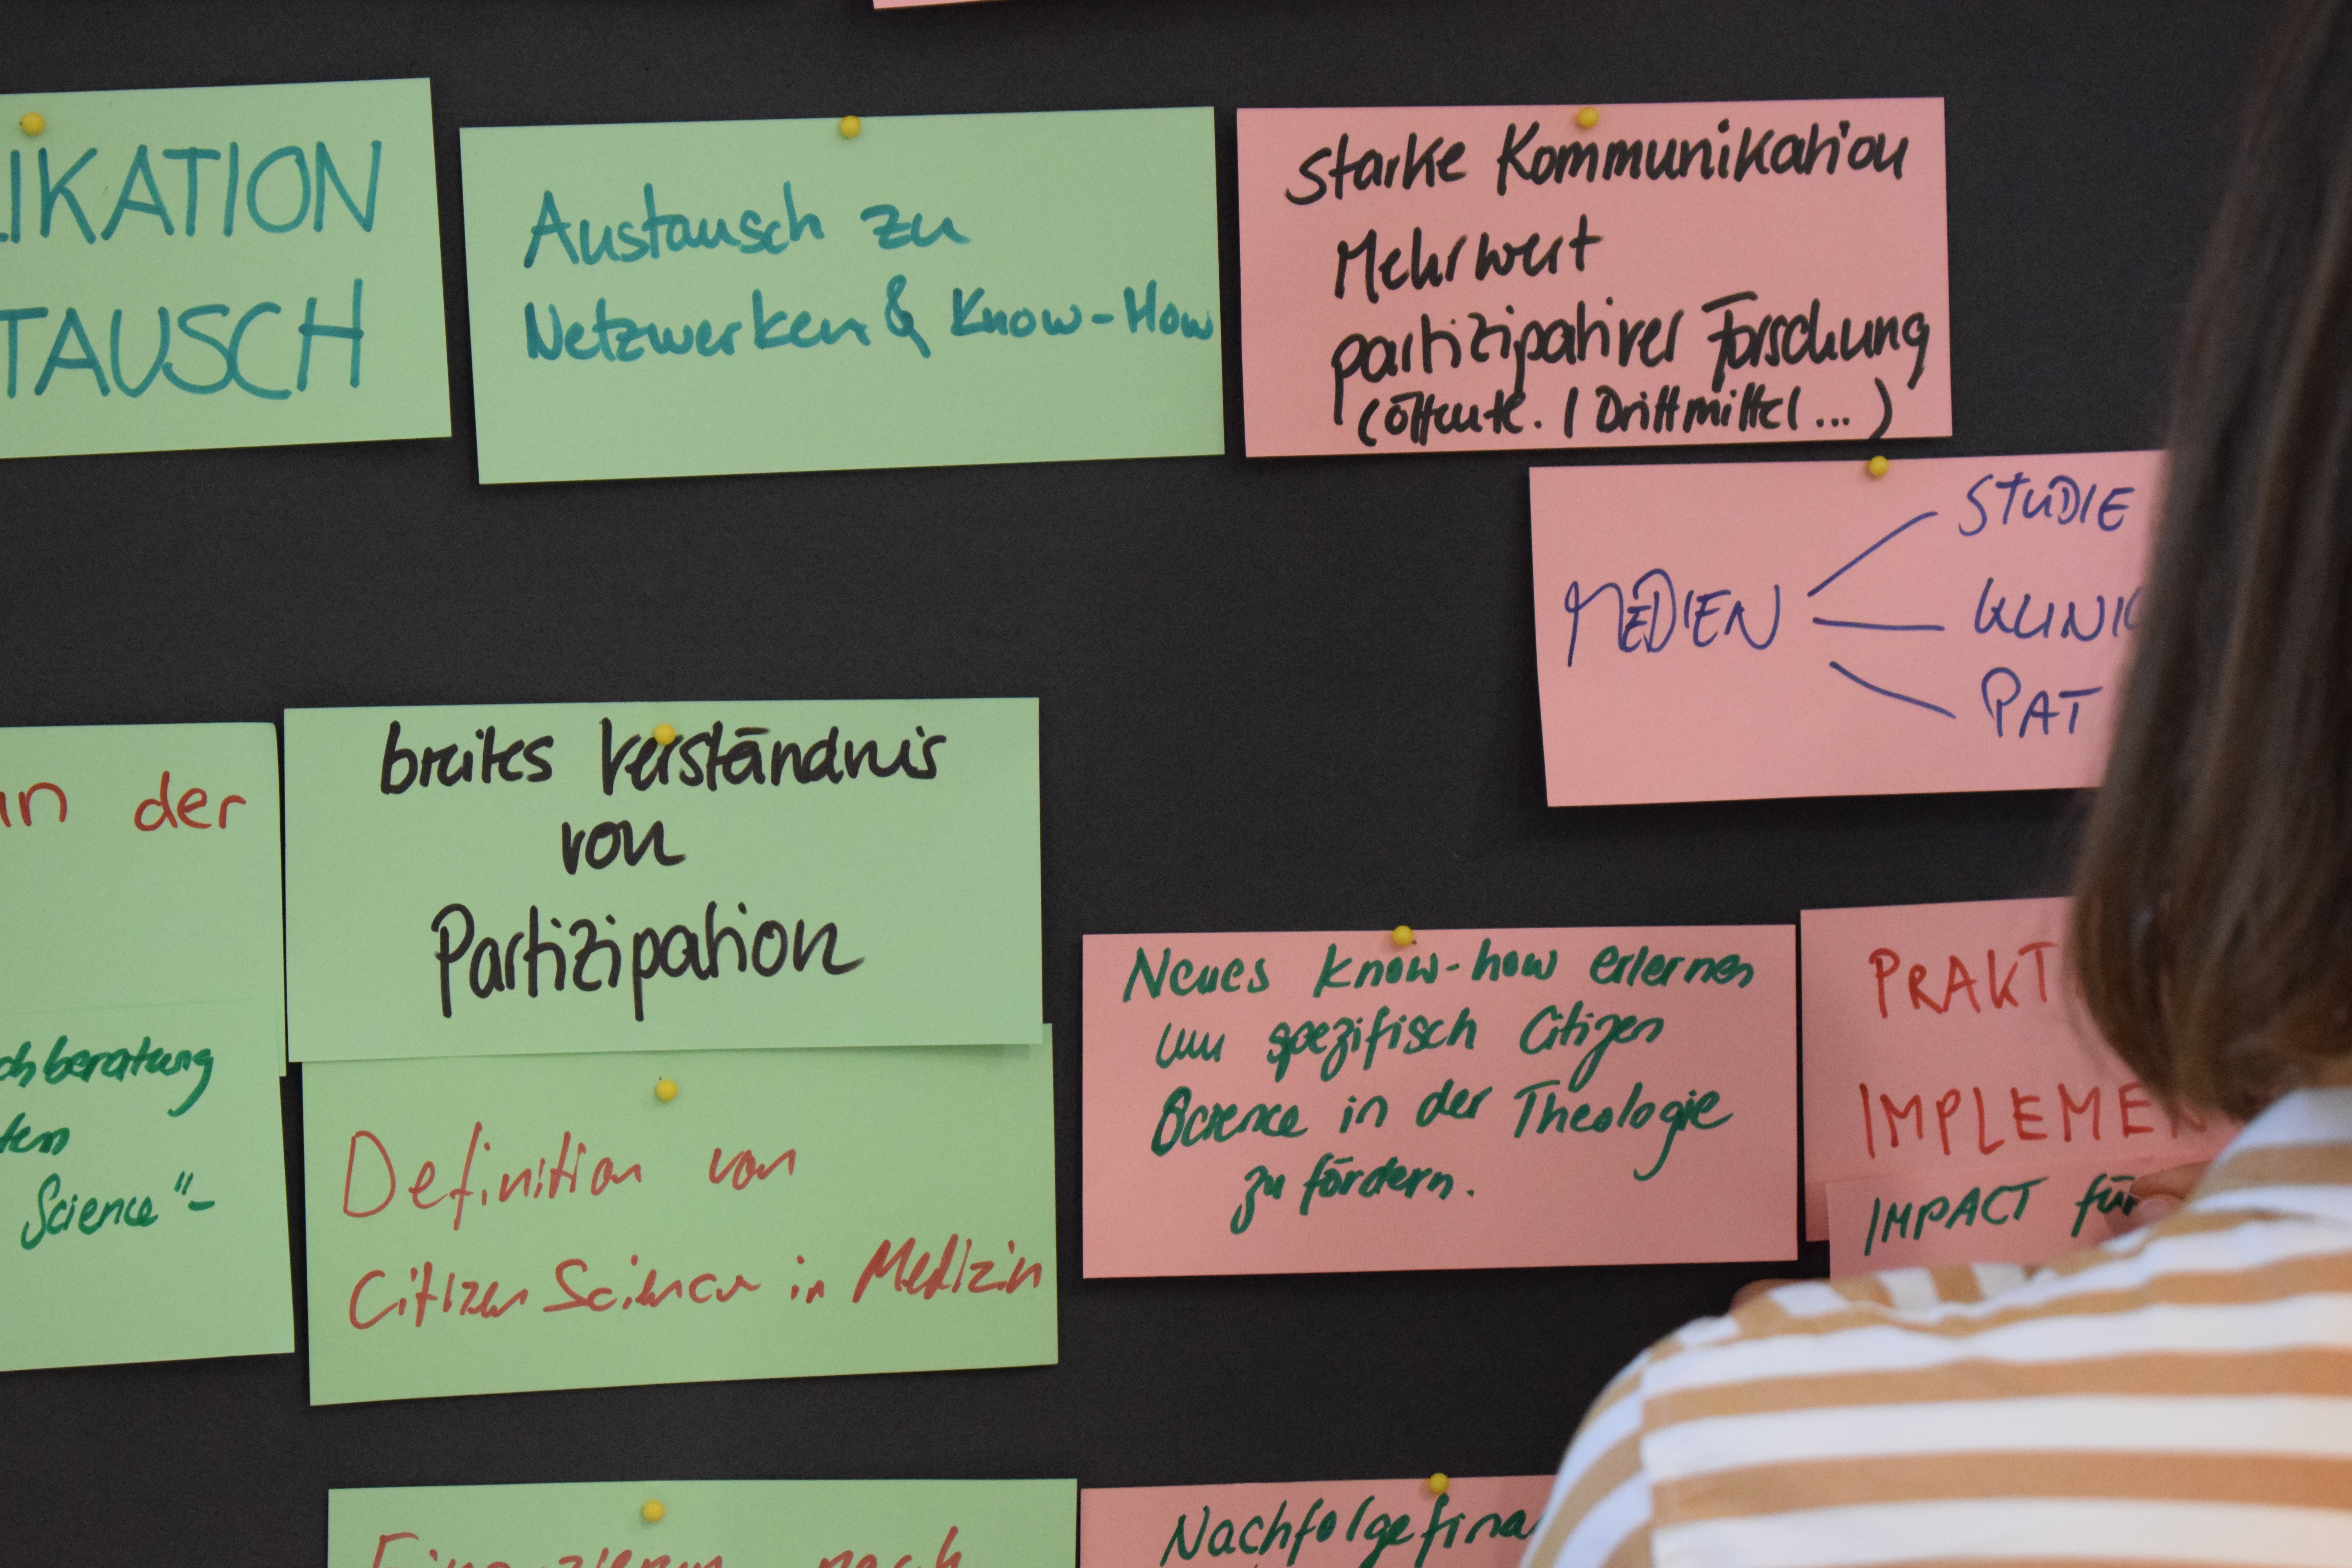 IKATION
TAUSCH
Austausch zu
Netzwerken & Know-How
starke Kommunikation
Mehrwert
partizipativer Forschung
(Öffentk. / Drittmittel ... )
MEDIEN
STUDIE
KLINIK
PAT
in der
chberatung
ten
Science"-
breites Verständnis
von
Partizipation
Definition von
Citizen Science in Medizin
Neues Know-how erlernen
um spezifisch Citizen
Science in der Theologie
zu fördern.
PRAKT
IMPLEMEN
IMPACT für
nach
Nachfolgefina